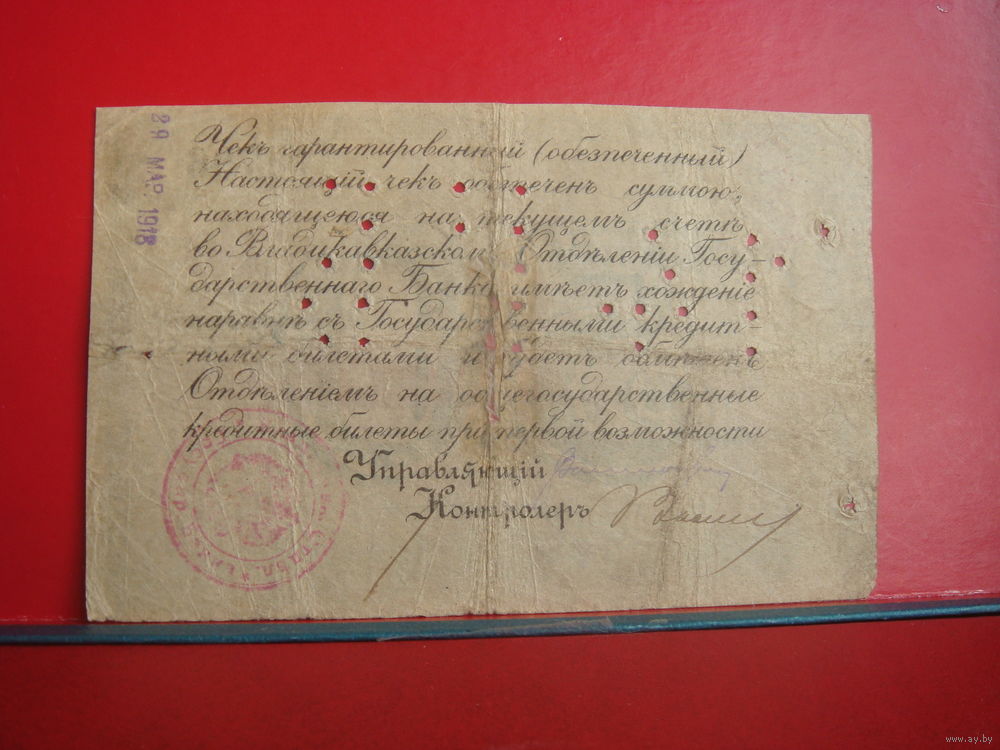 29 МАР 1918
Чекъ гарантированный (обезпеченный)
Настоящій чекъ обезпеченъ суммою,
находящеюся на текущемъ счетѣ
во Владикавказскомъ Отдѣленіи Госу-
дарственнаго Банка имѣетъ хожденіе
наравнѣ съ Государственными кредит-
ными билетами и будетъ обмѣненъ
Отдѣленіемъ на общегосударственные
кредитные билеты при первой возможности
Управляющій
Контролеръ
www.ay.by